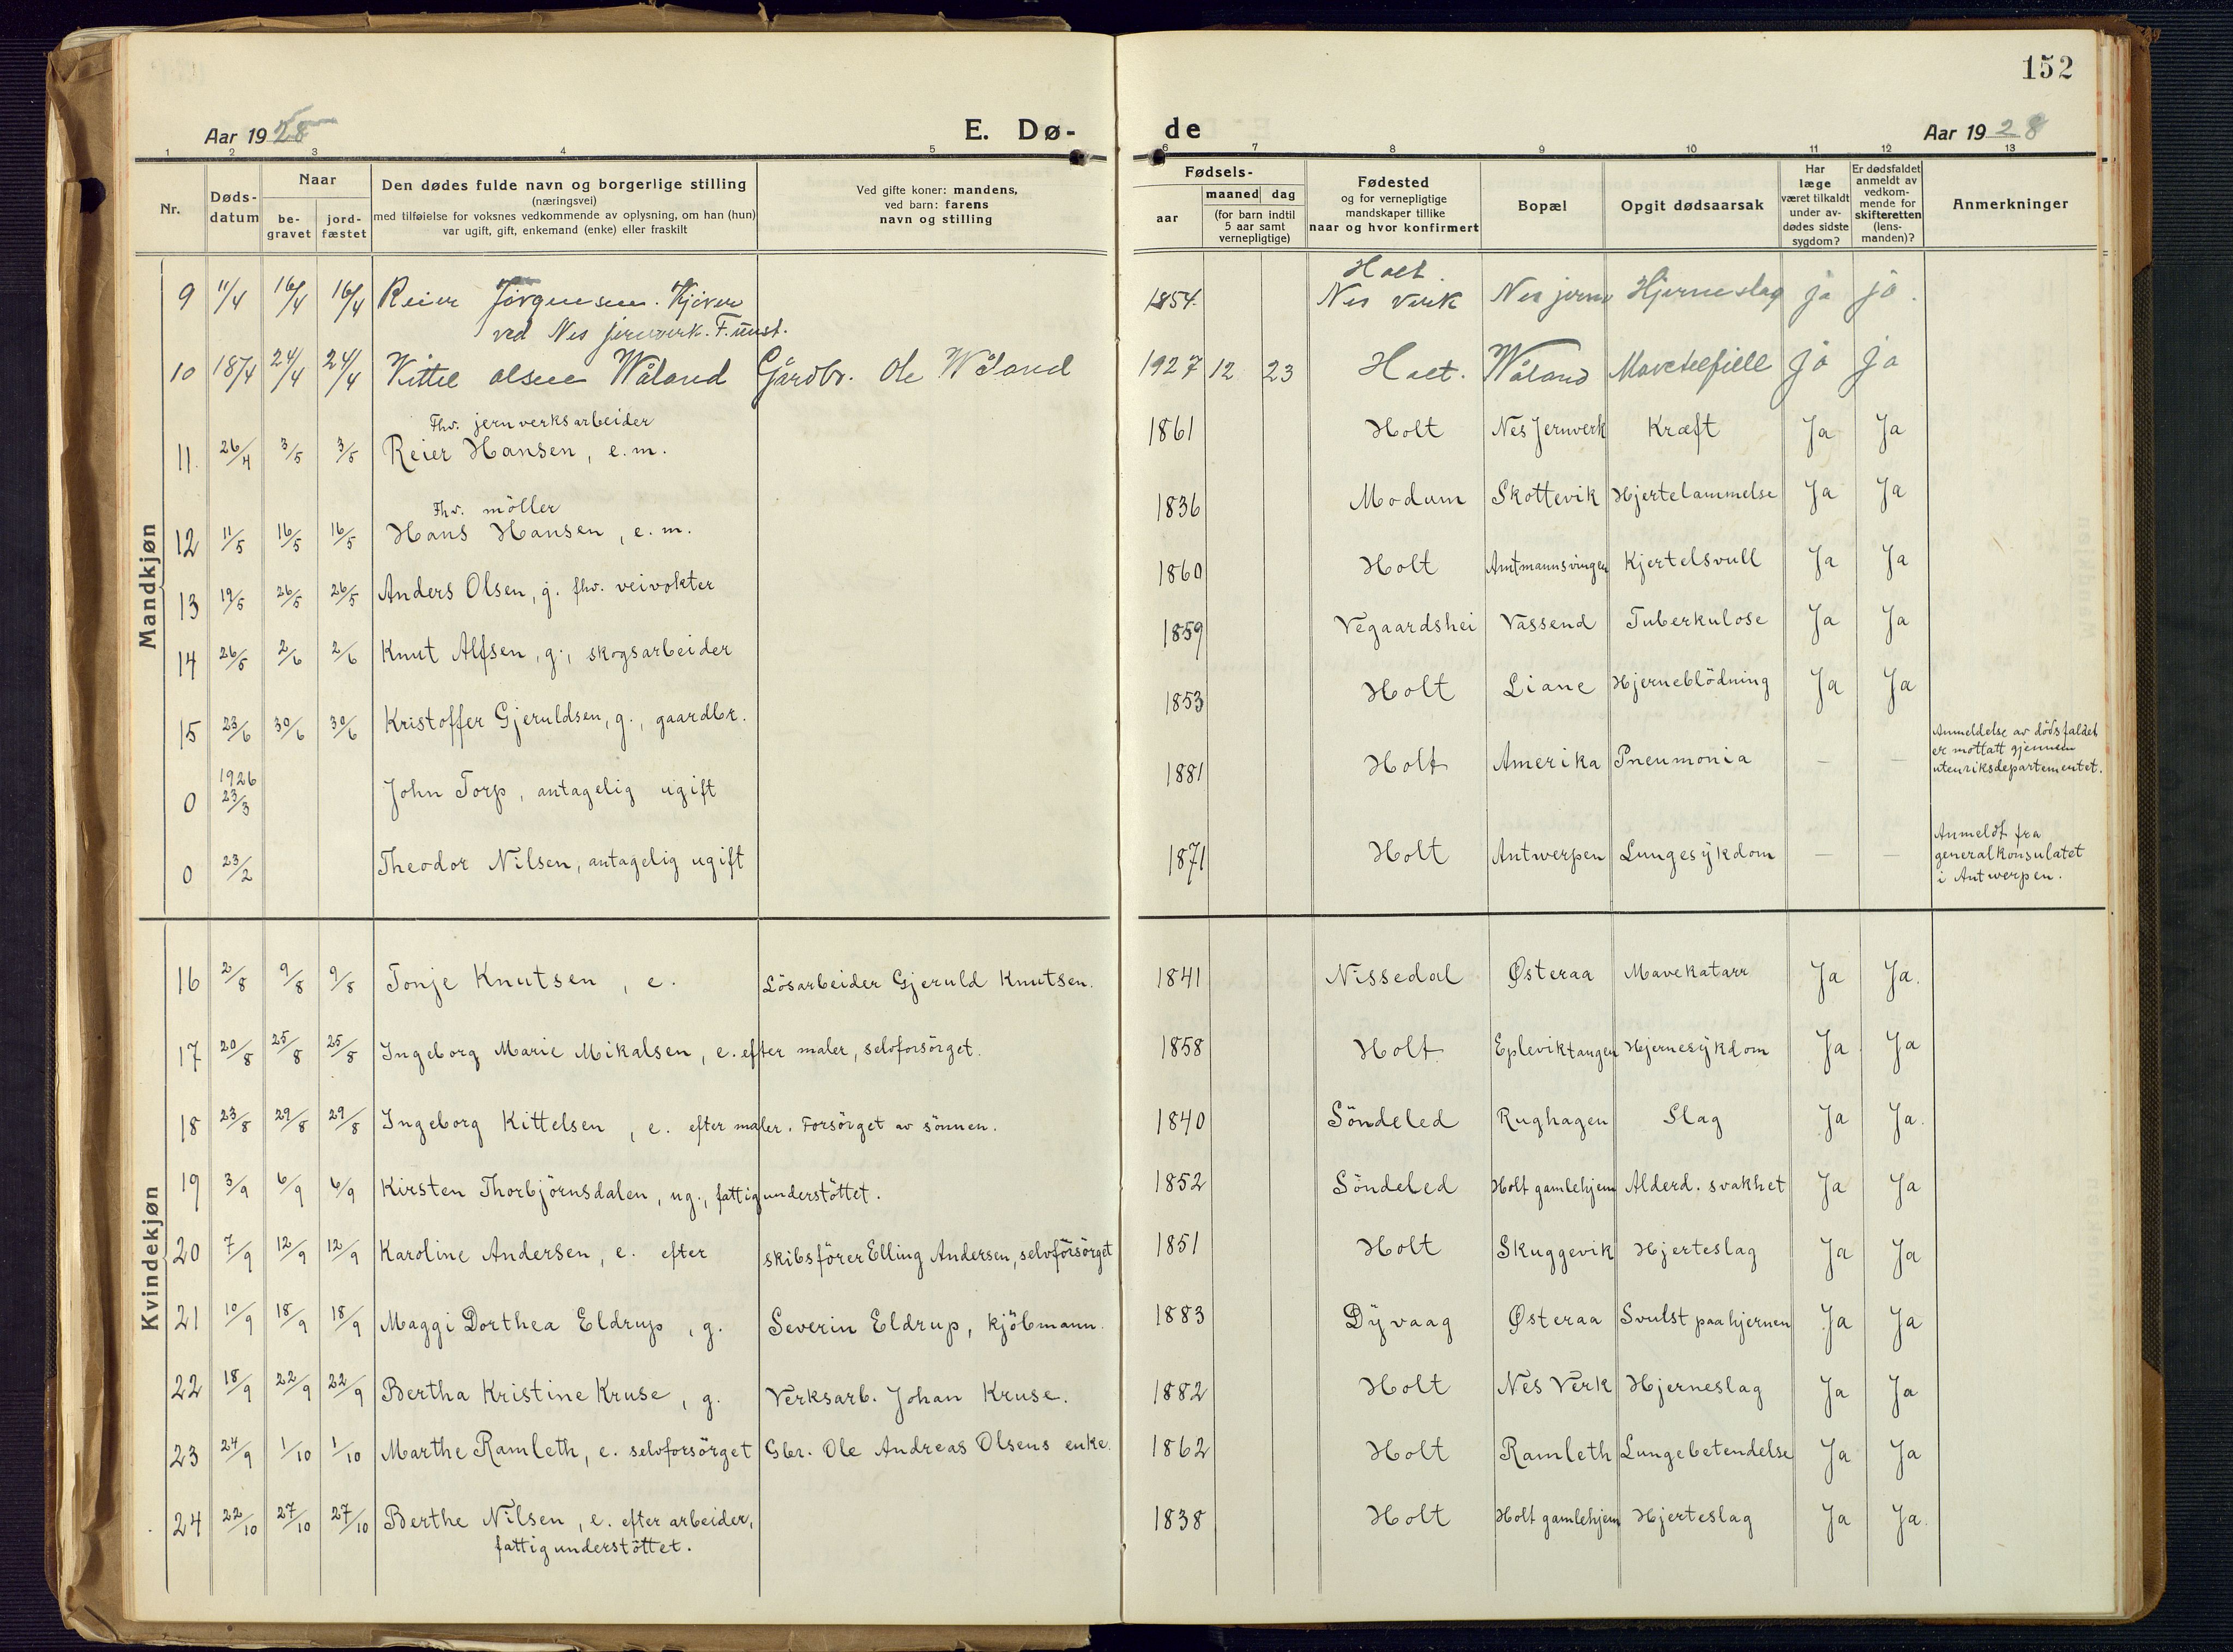 152
Aar 1928 E. Dø- de Aar 1928
1 2 3 4 5 6 7 8 9 10 11 12 13
Nr. Døds-datum Naar be-gravet jord-fæstet Den dødes fulde navn og borgerlige stilling (næringsvei) med tilføielse for voksnes vedkommende av oplysning, om han (hun) var ugift, gift, enkemand (enke) eller fraskilt Ved gifte koner: mandens, ved barn: farens navn og stilling Fødsels- aar maaned dag (for barn indtil 5 aar samt vernepligtige) Fødested og for vernepligtige mandskaper tillike naar og hvor konfirmert Bopæl Opgit dødsaarsak Har læge været tilkaldt under av-dødes sidste sygdom? Er dødsfaldet anmeldt av vedkom-mende for skifteretten (lens-manden)? Anmerkninger
Mandkjøn
9 11/4 16/4 16/4 Reier Jörgensen. 1854. Holt. Nes Verk Nes jernv Hjerneslag ja ja.
ved Nes jernverk.
10 18/4 24/4 24/4 Kittil Olsen Wåland Gårdbr. Ole Wåland 1927 12 23 Holt. Wåland Mavetilfelle ja ja
Fhv. jernverksarbeider
11. 26/4 3/5 3/5 Reier Hansen, e.m. 1861 Holt Nes Jernverk Kræft Ja Ja
Fhv. möller
12 11/5 16/5 16/5 Hans Hansen, e.m. 1836 Modum Skottevik Hjertelammelse Ja Ja
13 19/5 26/5 26/5 Anders Olsen, g. fhv. veivokter 1860 Holt Amtmannsvingen Kjertelsvull Ja Ja
14 26/5 2/6 2/6 Knut Alfsen, g., skogsarbeider 1859 Vegaardshei Vassend Tuberkulose Ja Ja
15 23/6 30/6 30/6 Kristoffer Gjeruldsen, g., gaardbr. 1853 Holt Liane Hjerneblödning Ja Ja
0 1926 23/3 John Torp, antagelig ugift 1881 Holt Amerika Pneumonia — — Anmeldelse av dödsfaldet er mottatt gjennem utenriksdepartementet.
0 23/2 Theodor Nilsen, antagelig ugift 1871 Holt Antwerpen Lungesykdom — — Anmeldt fra generalkonsulatet i Antwerpen.
Kvindekjøn
16 2/8 9/8 9/8 Tonje Knutsen, e. Lösarbeider Gjeruld Knutsen. 1841 Nissedal Østeraa Mavekatarr Ja Ja.
17 20/8 25/8 25/8 Ingeborg Marie Mikalsen, e. efter maler, selvforsörget. 1858 Holt Epleviktangen Hjernesykdom Ja Ja
18 23/8 29/8 29/8 Ingeborg Kittelsen, e. efter maler. Forsörget av sönnen. 1840 Söndeled Rughagen Slag Ja Ja.
19 3/9 6/9 6/9 Kirsten Thorbjörnsdalen, ug., fattigunderstöttet. 1852 Söndeled Holt gamlehjem Alderd. svakhet Ja Ja
20 7/9 12/9 12/9 Karoline Andersen, e. efter skibsförer Elling Andersen, selvforsörget 1851 Holt Skuggevik Hjerteslag Ja Ja
21 10/9 18/9 18/9 Maggi Dorthea Eldrup, g. Severin Eldrup, kjöbmann. 1883 Dyvaag Østeraa Svulst paa hjernen Ja Ja
22 18/9 22/9 22/9 Bertha Kristine Kruse, g. Verksarb. Johan Kruse. 1882 Holt Nes Verk Hjerneslag Ja Ja
23 24/9 1/10 1/10 Marthe Ramleth, e. selvforsörget Gbr. Ole Andreas Olsens enke. 1862 Holt Ramleth Lungebetendelse Ja Ja
24 22/10 27/10 27/10 Berthe Nilsen, e. efter arbeider, 1838 Holt Holt gamlehjem Hjerteslag Ja Ja.
fattigunderstöttet.